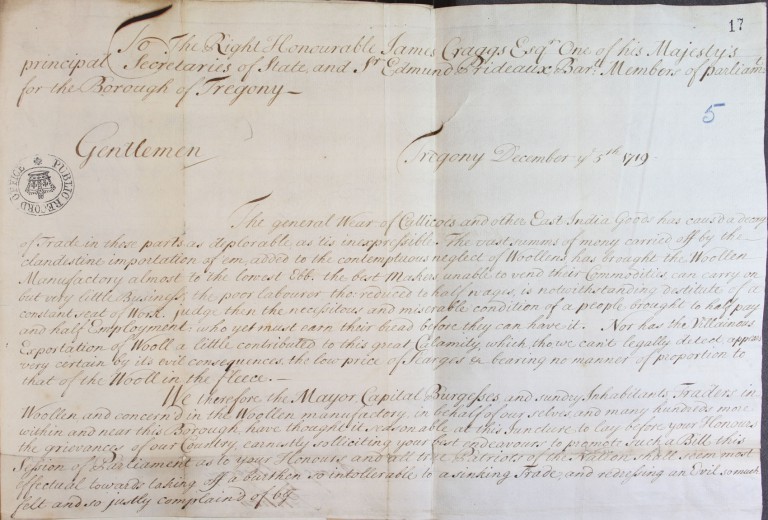 17
To The Right Honourable James Craggs Esqr One of his Majesty's
principal Secretaries of State, and Sr Edmund Prideaux Bart Members of parliamt
for the Borough of Tregony
5
Gentlemen
Tregony December ye 5th 1719
PUBLIC RECORD OFFICE
The general Wear of Callicots and other East India Goods has causd a decay
of Trade in these parts as deplorable as tis inexpressible. The vast summs of mony carried off by the
clandestine importation of em, added to the contemptuous neglect of Woollens has brought the Woollen
Manufactory almost to the lowest Ebb. the best Makers unable to vend their Commodities can carry on
but very little Business, the poor labourer tho reduced to half wages, is notwithstanding destitute of a
constant seat of Work. judge then the necessitous and miserable condition of a people brought to half pay
and half Employment, who yet must earn their bread before they can have it. Nor has the Villainous
Exportation of Wooll a little contributed to this great Calamity, which, tho we can't legally detect appears
very certain by its evil consequences, the low price of Searges &c bearing no manner of proportion to
that of the Wooll in the fleece.
We therefore the Mayor Capital Burgesses and sundry Inhabitants, Traders in
Woollen, and concernd in the Woollen manufactory, in behalf of our selves and many hundreds more
within and near this Borough, have thought it seasonable at this Juncture to lay before your Honours
the grievances of our Country, earnestly solliciting your best endeavours to promote such a Bill this
Session of Parliament as to your Honours and all true Patriots of the Nation shall seem most
effectual towards taking off a burthen so intollerable to a sinking Trade, and redressing an Evil so much
felt and so justly complaind of by